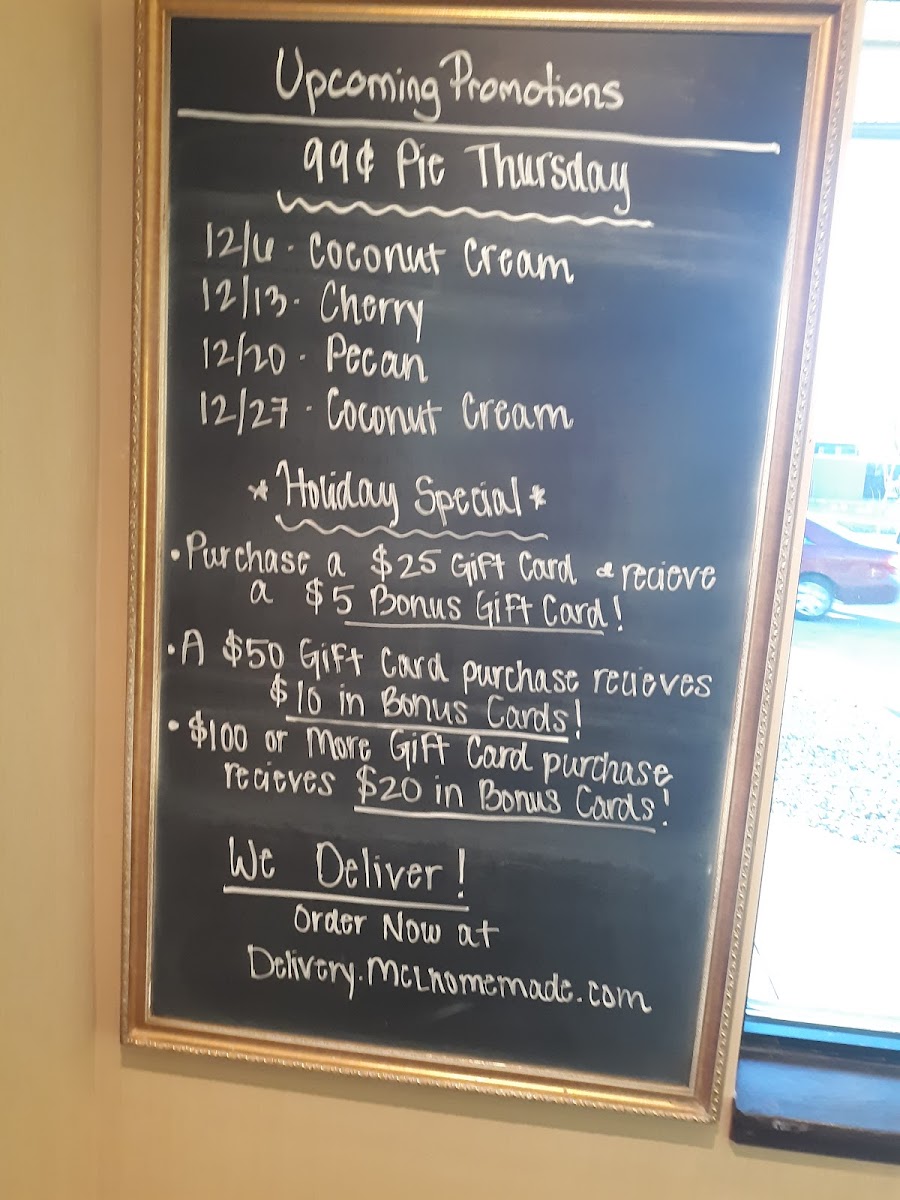 Upcoming Promotions
99¢ Pie Thursday
12/6 - Coconut Cream
12/13 - Cherry
12/20 - Pecan
12/27 - Coconut Cream
* Holiday Special *
• Purchase a $25 Gift Card & recieve
a $5 Bonus Gift Card!
• A $50 Gift Card purchase recieves
$10 in Bonus Cards!
• $100 or More Gift Card purchase
recieves $20 in Bonus Cards!
We Deliver!
Order Now at
Delivery.MCLhomemade.com